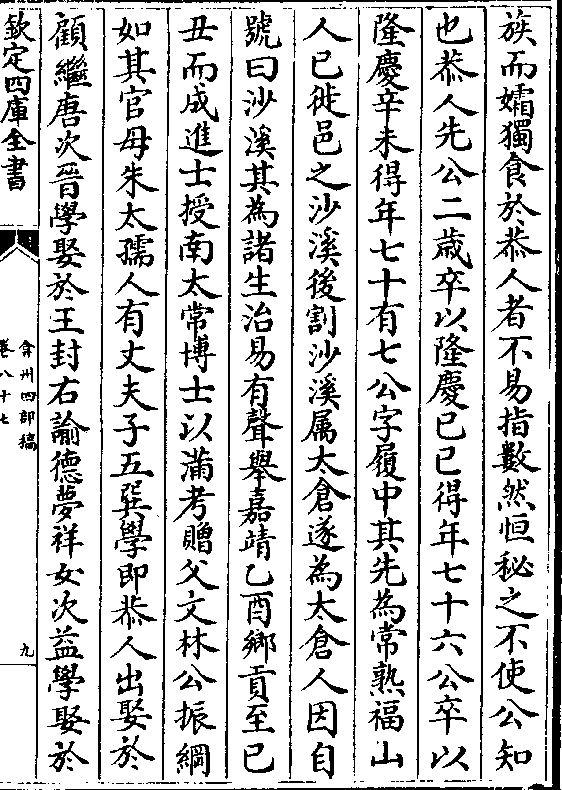 族而孀獨食於恭人者不易指數然恒秘之不使公知
也恭人先公二歲卒以隆慶已已得年七十六公卒以
隆慶辛未得年七十有七公字履中其先為常熟福山
人已徙邑之沙溪後割沙溪属太倉遂為太倉人因自
號曰沙溪其為諸生治易有聲舉嘉靖乙酉鄉貢至已
丑而成進士授南太常博士以滿考贈父文林公振綱
如其官母朱太孺人有丈夫子五巽學即恭人出娶於
顧繼唐次晉學娶於王封右諭德夢祥女次益學娶於
欽定四庫全書
弇州四部稿
卷八十七
九